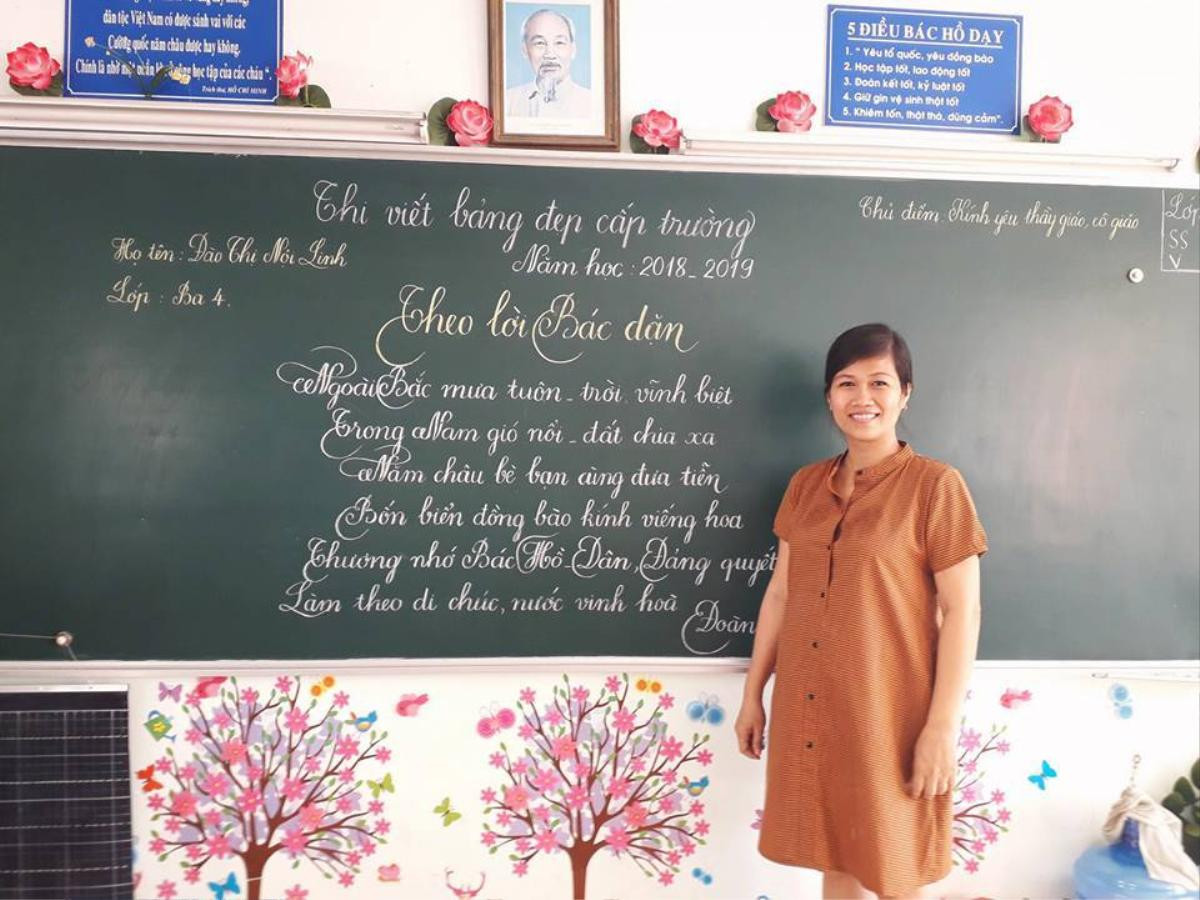 dân tộc Việt Nam có được sánh vai với các
Cường quốc năm châu được hay không.
Chính là nhờ một phần lớn công học tập của các cháu".
Trích thư, HỒ CHÍ MINH
5 ĐIỀU BÁC HỒ DẠY
1. " Yêu tổ quốc, yêu đồng bào
2. Học tập tốt, lao động tốt
3. Đoàn kết tốt, kỷ luật tốt
4. Giữ gìn vệ sinh thật tốt
5. Khiêm tốn, thật thà, dũng cảm".
Thi viết bảng đẹp cấp trường
Năm học : 2018 - 2019
Chủ điểm: Kính yêu thầy giáo, cô giáo
Lớp
SS
V
Họ tên : Đào Thị Nội Linh
Lớp : Ba 4.
Theo lời Bác dặn
Ngoài Bắc mưa tuôn - trời vĩnh biệt
Trong Nam gió nổi - đất chia xa
Năm châu bè bạn cùng đưa tiễn
Bốn biển đồng bào kính viếng hoa
Thương nhớ Bác Hồ - Dân, Đảng quyết
Làm theo di chúc, nước vinh hoà
Đoàn